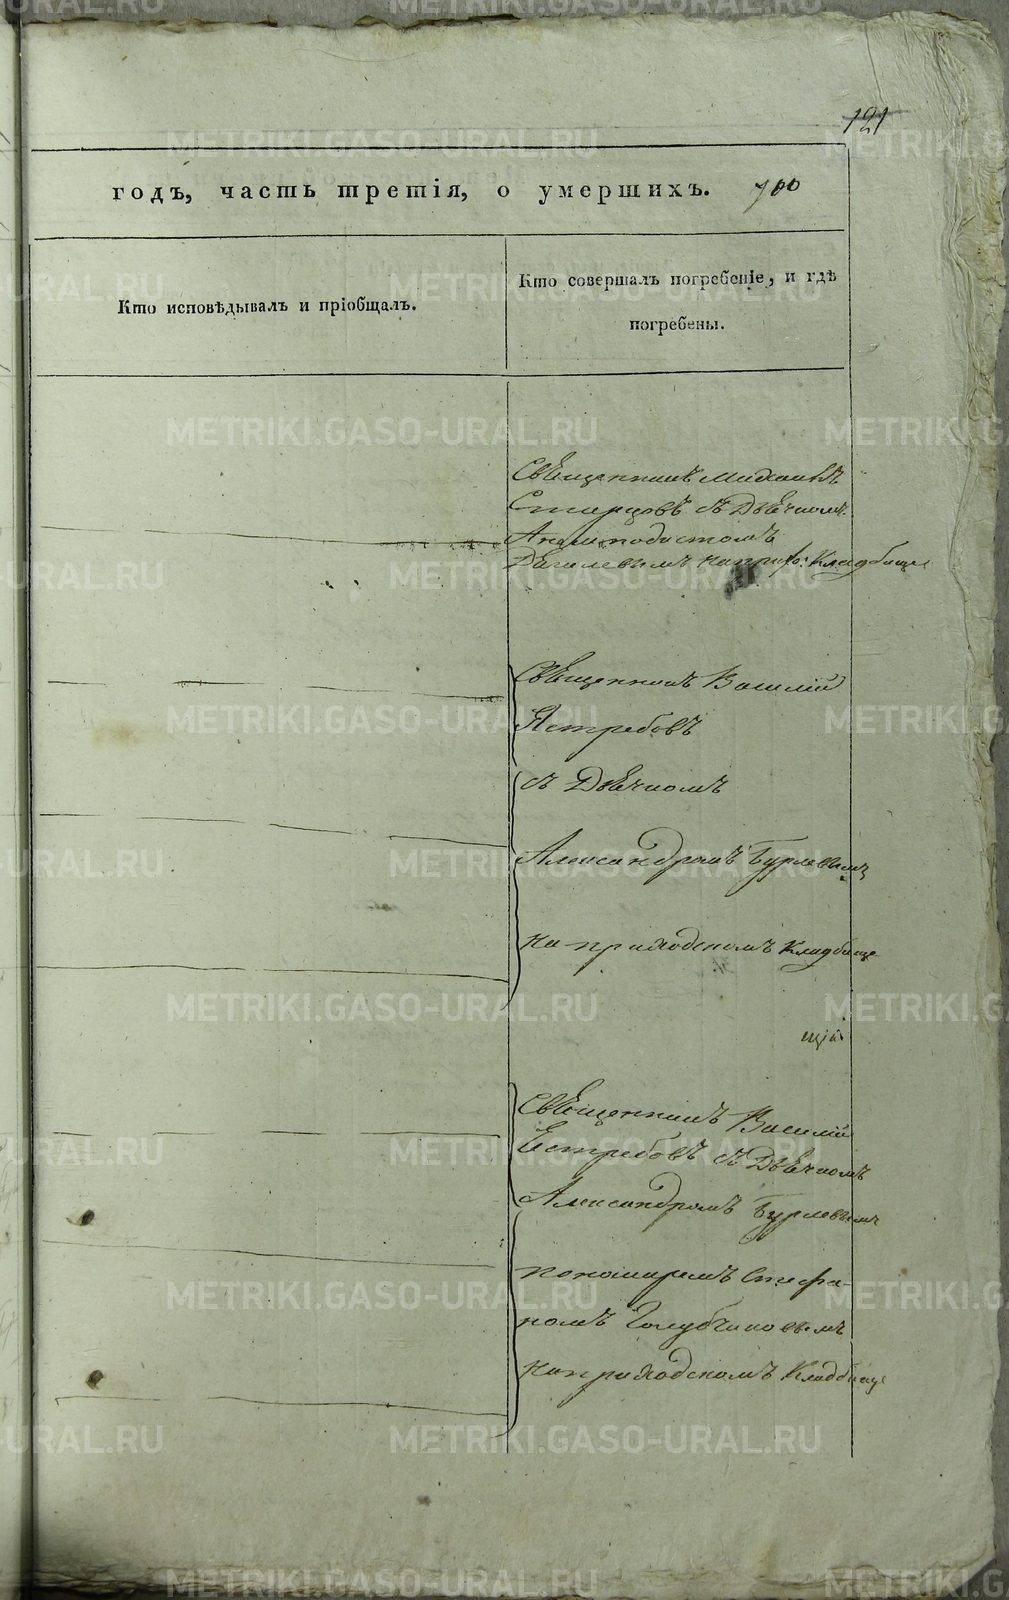 121
годъ, часть третія, о умершихъ. 700
Кто исповѣдывалъ и пріобщалъ.
Кто совершалъ погребеніе, и гдѣ
погребены.
Священникъ Михаилъ
Старцовъ съ Дьячкомъ
Анемподистомъ
на прих: Кладбище
Священникъ Василій
Ястребовъ
съ Дьячкомъ
Александромъ Бурлевымъ
на приходскомъ Кладбище
Священникъ Василій
Естребовъ съ Дьячкомъ
Александромъ Бурлевымъ
пономаремъ Стефа-
номъ Голубчиковымъ
на приходскомъ Кладбище
METRIKI.GASO-URAL.RU